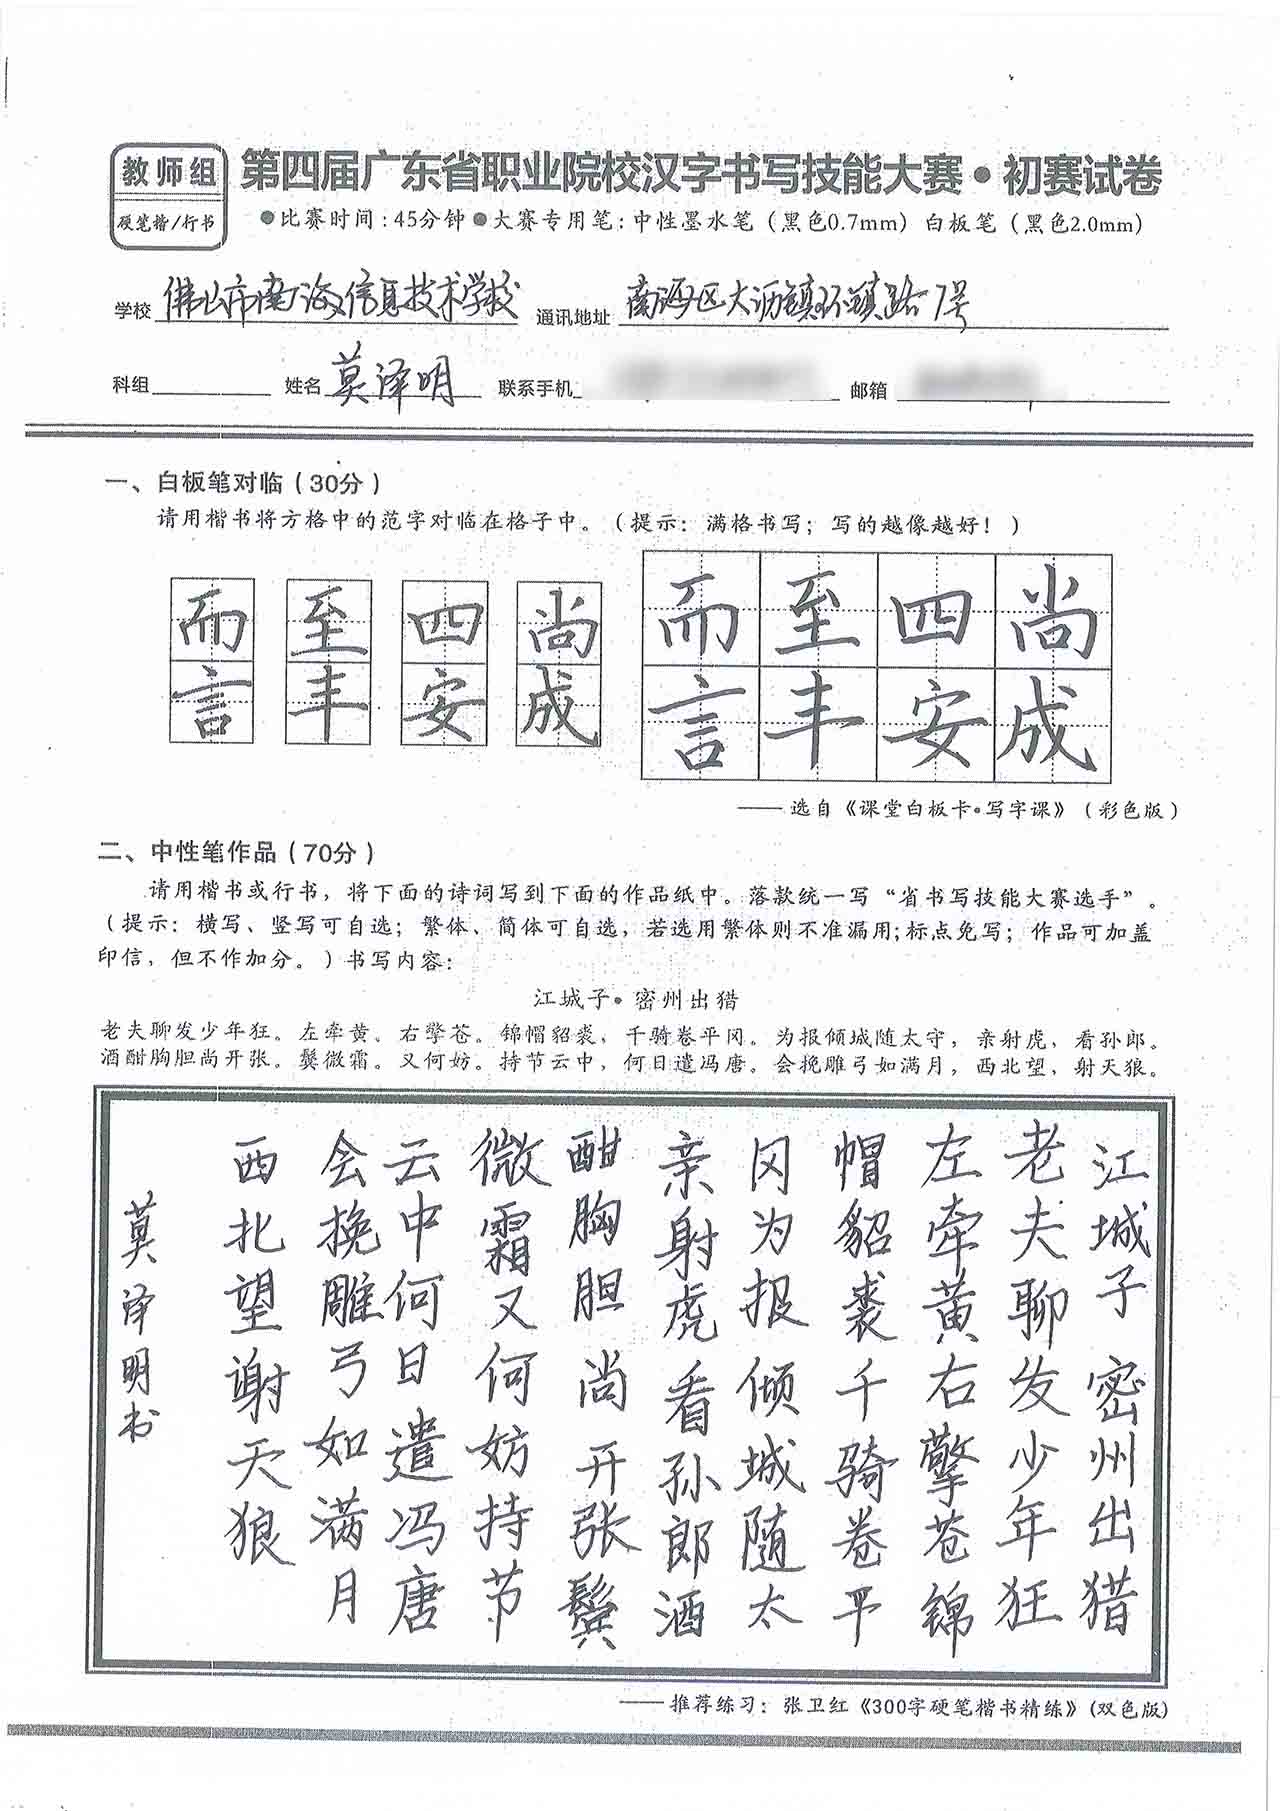 教师组
硬笔楷/行书
第四届广东省职业院校汉字书写技能大赛·初赛试卷
●比赛时间:45分钟●大赛专用笔:中性墨水笔(黑色0.7mm)白板笔(黑色2.0mm)
学校 佛山市南海信息技术学校 通讯地址 南海区大沥镇环镇路1号
科组 姓名 莫泽明 联系手机 邮箱
一、白板笔对临(30分)
请用楷书将方格中的范字对临在格子中。(提示:满格书写;写的越像越好!)
而 至 四 尚 而 至 四 尚
言 丰 安 成 言 丰 安 成
——选自《课堂白板卡·写字课》(彩色版)
二、中性笔作品(70分)
请用楷书或行书,将下面的诗词写到下面的作品纸中。落款统一写“省书写技能大赛选手”。
(提示:横写、竖写可自选;繁体、简体可自选,若选用繁体则不准漏用;标点免写;作品可加盖
印信,但不作加分。)书写内容:
江城子·密州出猎
老夫聊发少年狂。左牵黄。右擎苍。锦帽貂裘,千骑卷平冈。为报倾城随太守,亲射虎,看孙郎。
酒酣胸胆尚开张。鬓微霜。又何妨。持节云中,何日遣冯唐。会挽雕弓如满月,西北望,射天狼。
江城子密州出猎
老夫聊发少年狂
左牵黄右擎苍锦
帽貂裘千骑卷平
冈为报倾城随太
亲射虎看孙郎酒
酣胸胆尚开张鬓
微霜又何妨持节
云中何日遣冯唐
会挽雕弓如满月
西北望谢天狼
莫泽明书
——推荐练习:张卫红《300字硬笔楷书精练》(双色版)